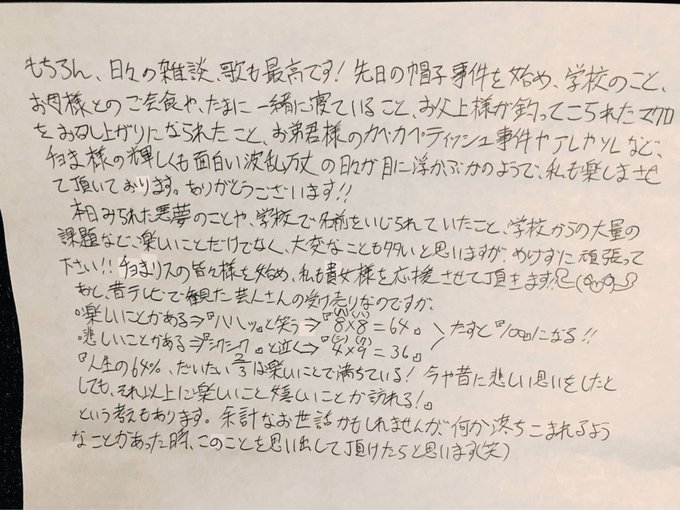 もちろん、日々の雑談、歌も最高です！先日の帽子事件を始め、学校のこと、
お母様とのご会食や、たまに一緒に寝ていること、お父上様が釣ってこられたマグロ
をお召し上がりになられたこと、お弟君様のカペカペティッシュ事件やアレやソレなど、
チョま様の輝しくも面白い波乱万丈の日々が目に浮かぶかのようで、私も楽しませ
て頂いております。ありがとうございます!!
本日みられた悪夢のことや、学校で名前をいじられていたこと、学校からの大量の
課題など、楽しいことだけでなく、大変なことも多いと思いますが、めげずに頑張って
下さい!!チョまリスの皆々様を始め、私も貴女様を応援させて頂きます!
あと、昔テレビで観た芸人さんの受け売りなのですが、
・楽しいことがある⇒『ハハハッ』と笑う⇒『8×8=64』
・悲しいことがある⇒『シクシク』と泣く⇒『4×9=36』
(ハ)(ハ)
(シ)(ク)
たすと『100』になる!!
『人生の64%、だいたい2/3は楽しいことで満ちている！今や昔に悲しい思いをしたと
しても、それ以上に楽しいこと嬉しいことが訪れる!』
という考えもあります。余計なお世話かもしれませんが、何か落ちこまれるよう
なことがあった時、このことを思い出して頂けたらと思います(笑)